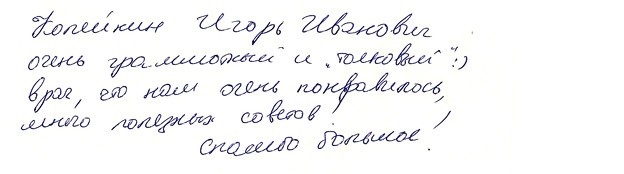 Копейкин Игорь Иванович
очень грамотный и „толковый“ :)
врач, его нам очень понравилось,
много полезных советов!
Спасибо большое!